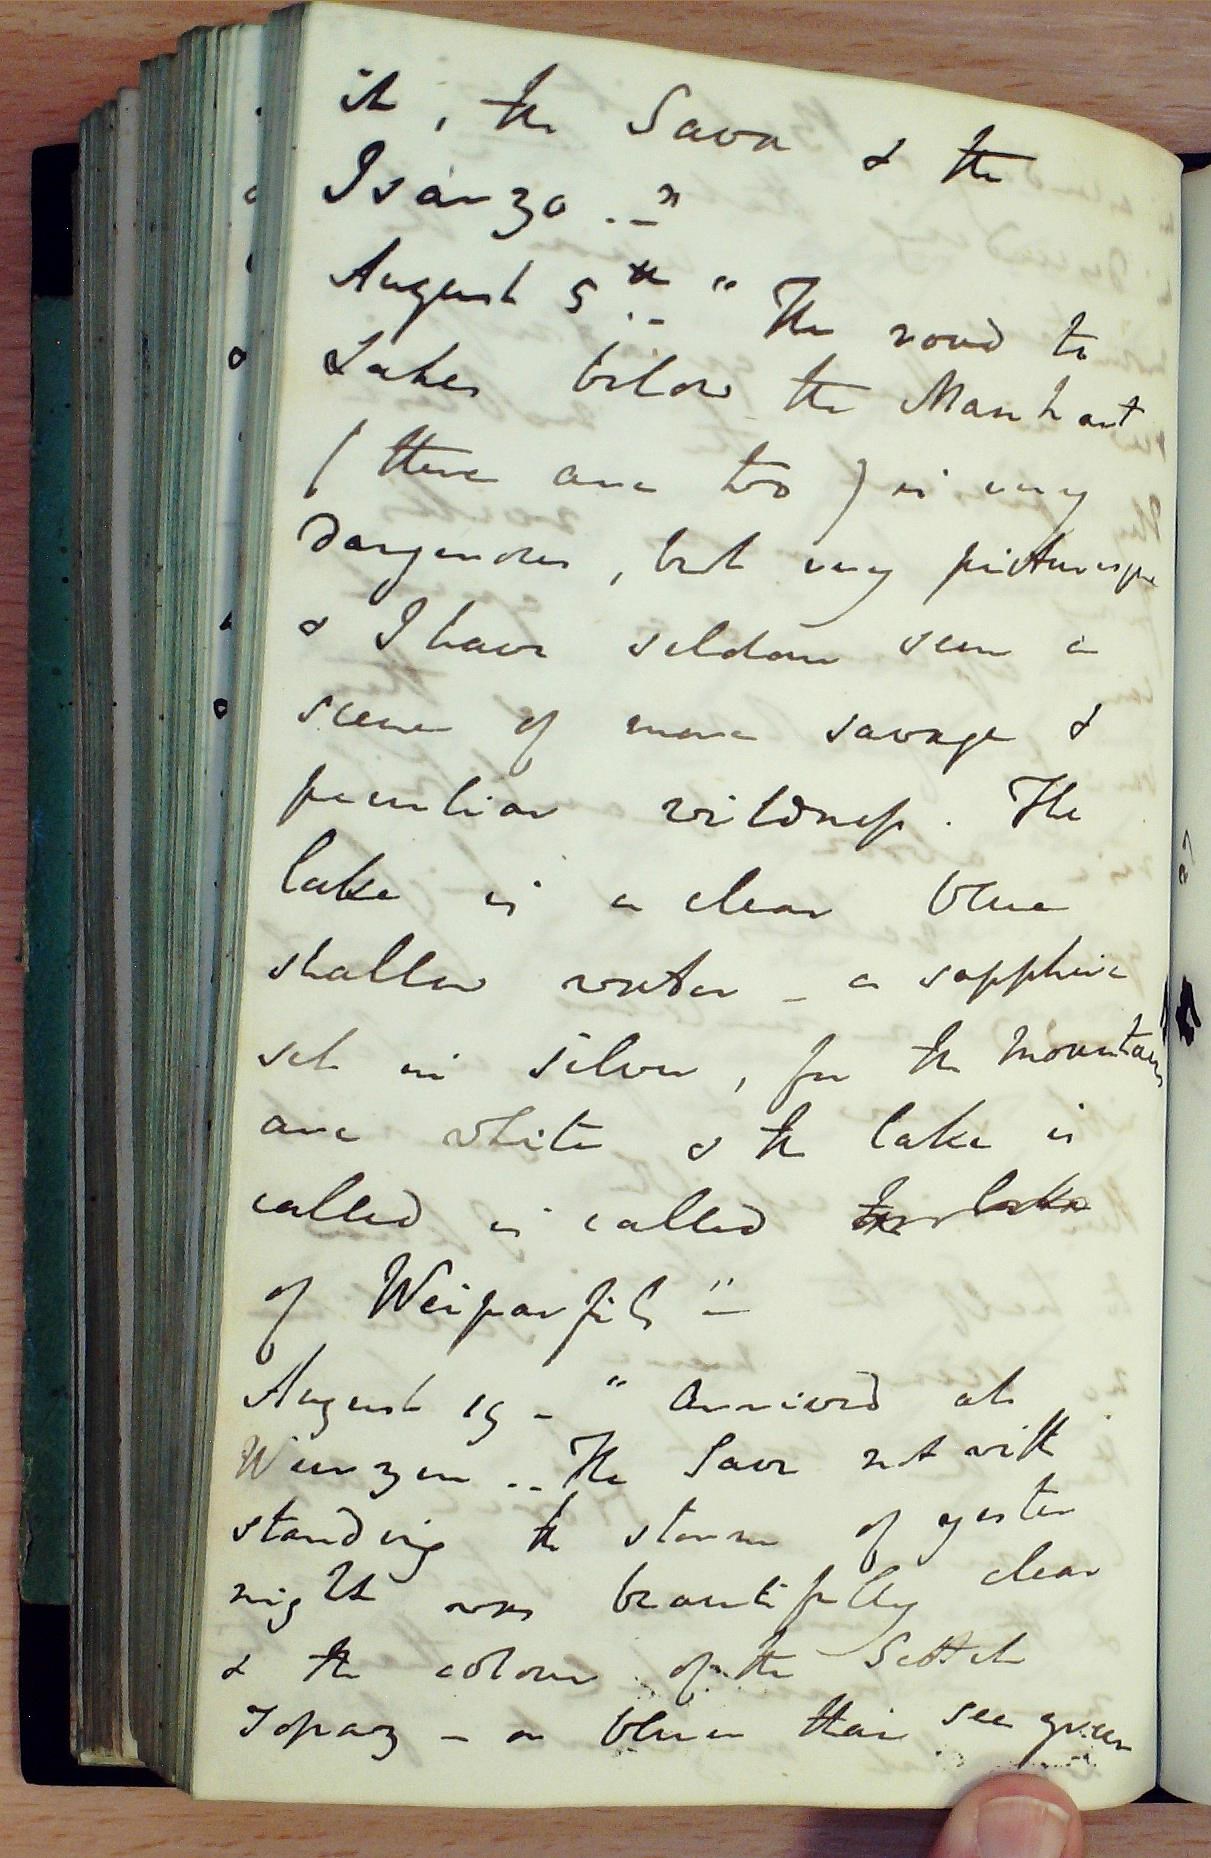 it, the Sava & the
Isonzo._"
August 5th._ " The road to
Lakes below the Manhart
(there are two) is very
dangerous, but very picturesque
& I have seldom seen a
scene of more savage &
peculiar wildness. The
lake is a clear blue
shallow water _ a sapphire
set in silver, for the mountains
are white & the lake is
called is called the lake
of Weissenfels "_
August 19 _ " Arrived at
Wurzen .. The Save notwith
standing the storm of yester
night was beautifully clear
& the colour of the Scotch
Topaz _ a bluer than sea green